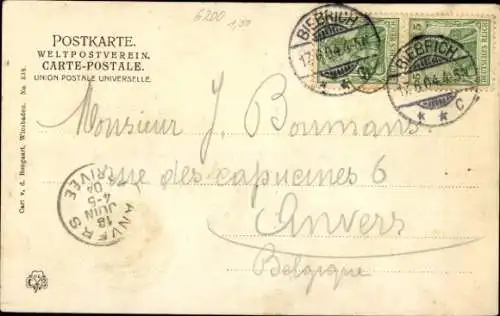 6200 1,50
POSTKARTE.
WELTPOSTVEREIN.
CARTE-POSTALE.
UNION POSTALE UNIVERSELLE.
Carl v. d. Boogaart, Wiesbaden. No. 252.
BIEBRICH
17.6.04.4-5N
* * c
BIEBRICH
17.6.04.4-5N
* * c
Monsieur J. Boumans
rue des capucines 6
Anvers
Belgique
ANVERS
18
JUIN
4-5
04
ARRIVÉE